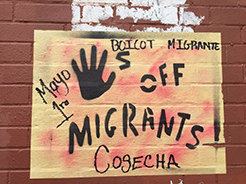 BOICOT MIGRANTE
S OFF
Mayo
1ro
MIGRANTS
COSECHA